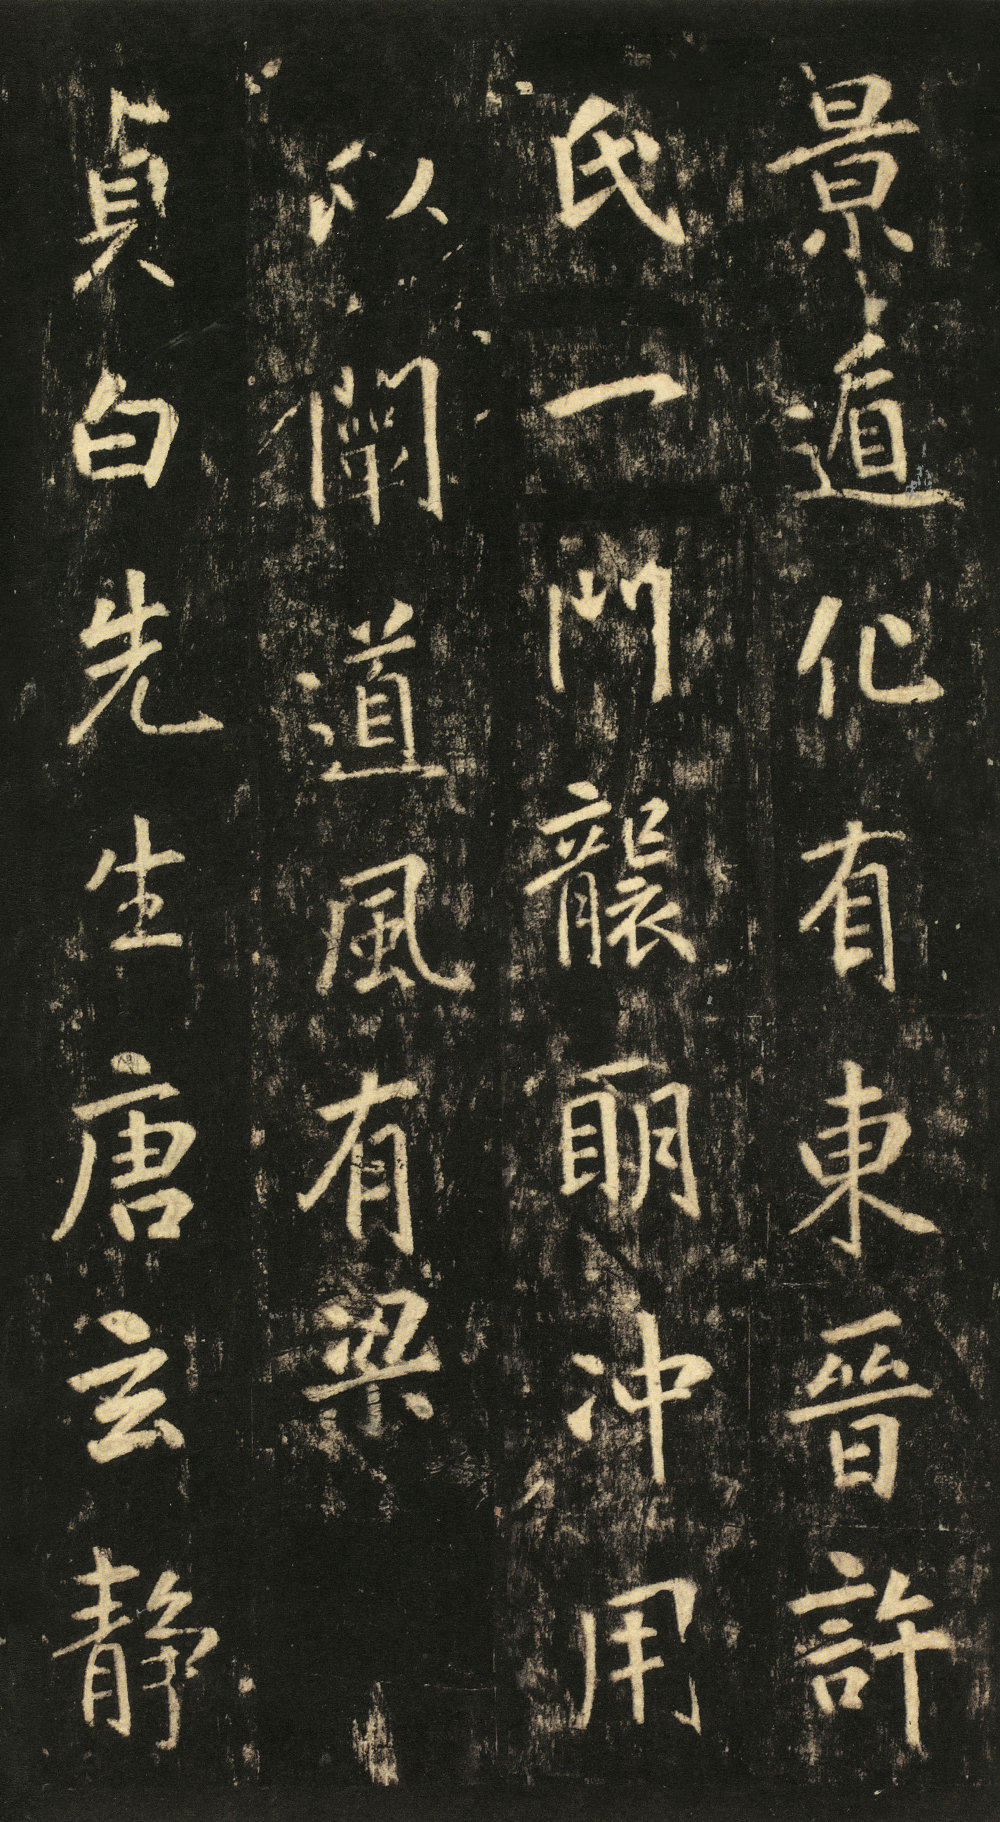 景遁化有東晉許
氏一門襲眀冲用
以闡道風有梁
貞白先生唐玄靜